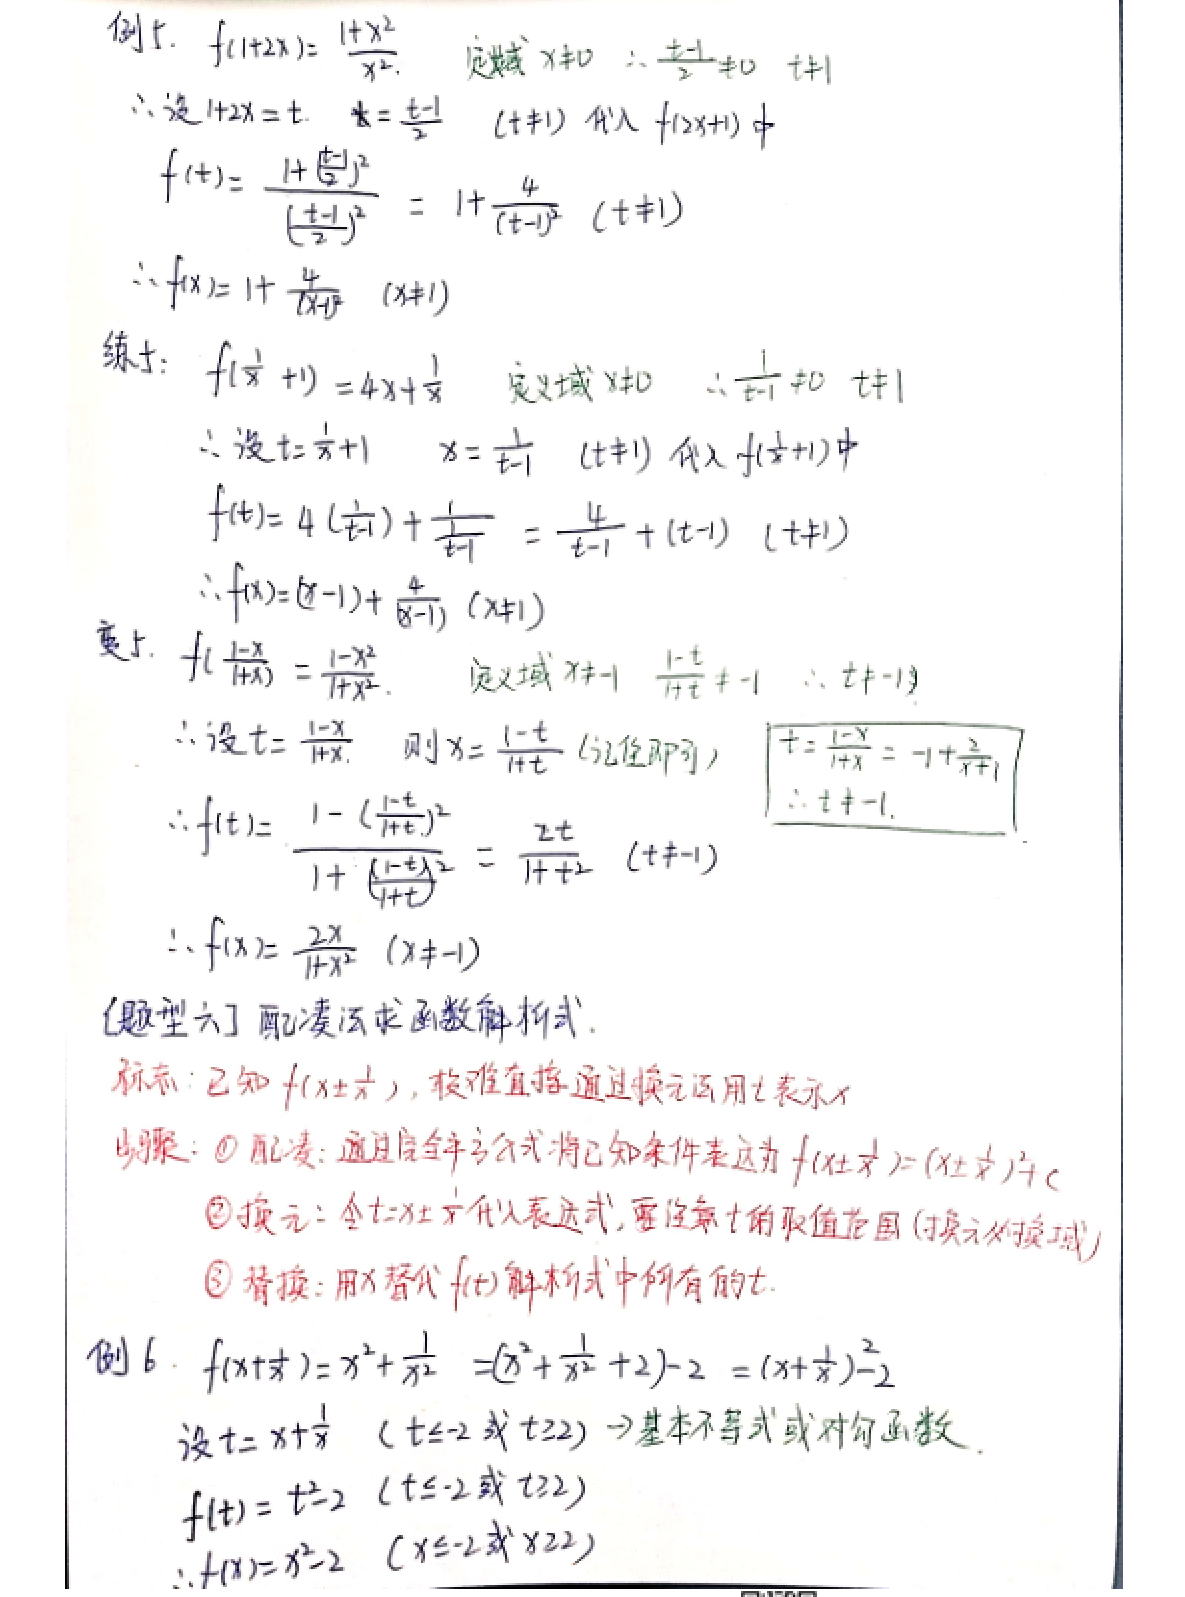 例5. f(1+2x)= (1+x²)/x². 定义域 x≠0 ∴ (t-1)/2 ≠0 t≠1
∴设1+2x=t. x= (t-1)/2 (t≠1) 代入 f(2x+1)中
f(t)= (1+((t-1)/2)²)/((t-1)/2)² = 1+ 4/(t-1)² (t≠1)
∴f(x)= 1+ 4/(x-1)² (x≠1)
练5: f(1/x +1) =4x+ 1/x 定义域 x≠0 ∴ 1/(t-1) ≠0 t≠1
∴设t= 1/x +1 x= 1/(t-1) (t≠1) 代入 f(1/x+1)中
f(t)= 4(1/(t-1)) + 1/(1/(t-1)) = 4/(t-1) + (t-1) (t≠1)
∴f(x)=(x-1)+ 4/(x-1) (x≠1)
变5. f((1-x)/(1+x)) = (1-x²)/(1+x²). 定义域 x≠-1 (1-t)/(1+t) ≠ -1 ∴ t≠-1
∴设t= (1-x)/(1+x). 则x= (1-t)/(1+t) (记住即可)
t= (1-x)/(1+x) = -1+ 2/(x+1)
∴t≠-1.
∴f(t)= (1-((1-t)/(1+t))²)/(1+((1-t)/(1+t))²) = 2t/(1+t²) (t≠-1)
∴f(x)= 2x/(1+x²) (x≠-1)
[题型六] 配凑法求函数解析式.
标志: 已知 f(x±1/x), 较难直接通过换元法用t表示x
步骤: ① 配凑: 通过完全平方公式将已知条件表达为 f(x±1/x)=(x±1/x)²+c
②换元: 令t=x±1/x代入表达式, 要注意t的取值范围(换元必换域)
③ 替换: 用x替代 f(t)解析式中所有的t.
例6. f(x+1/x)=x²+ 1/x² =(x²+ 1/x² +2)-2 =(x+1/x)²-2
设t= x+1/x (t≤-2 或 t≥2) →基本不等式或对勾函数.
f(t)= t²-2 (t≤-2或 t≥2)
∴f(x)=x²-2 (x≤-2或x≥2)